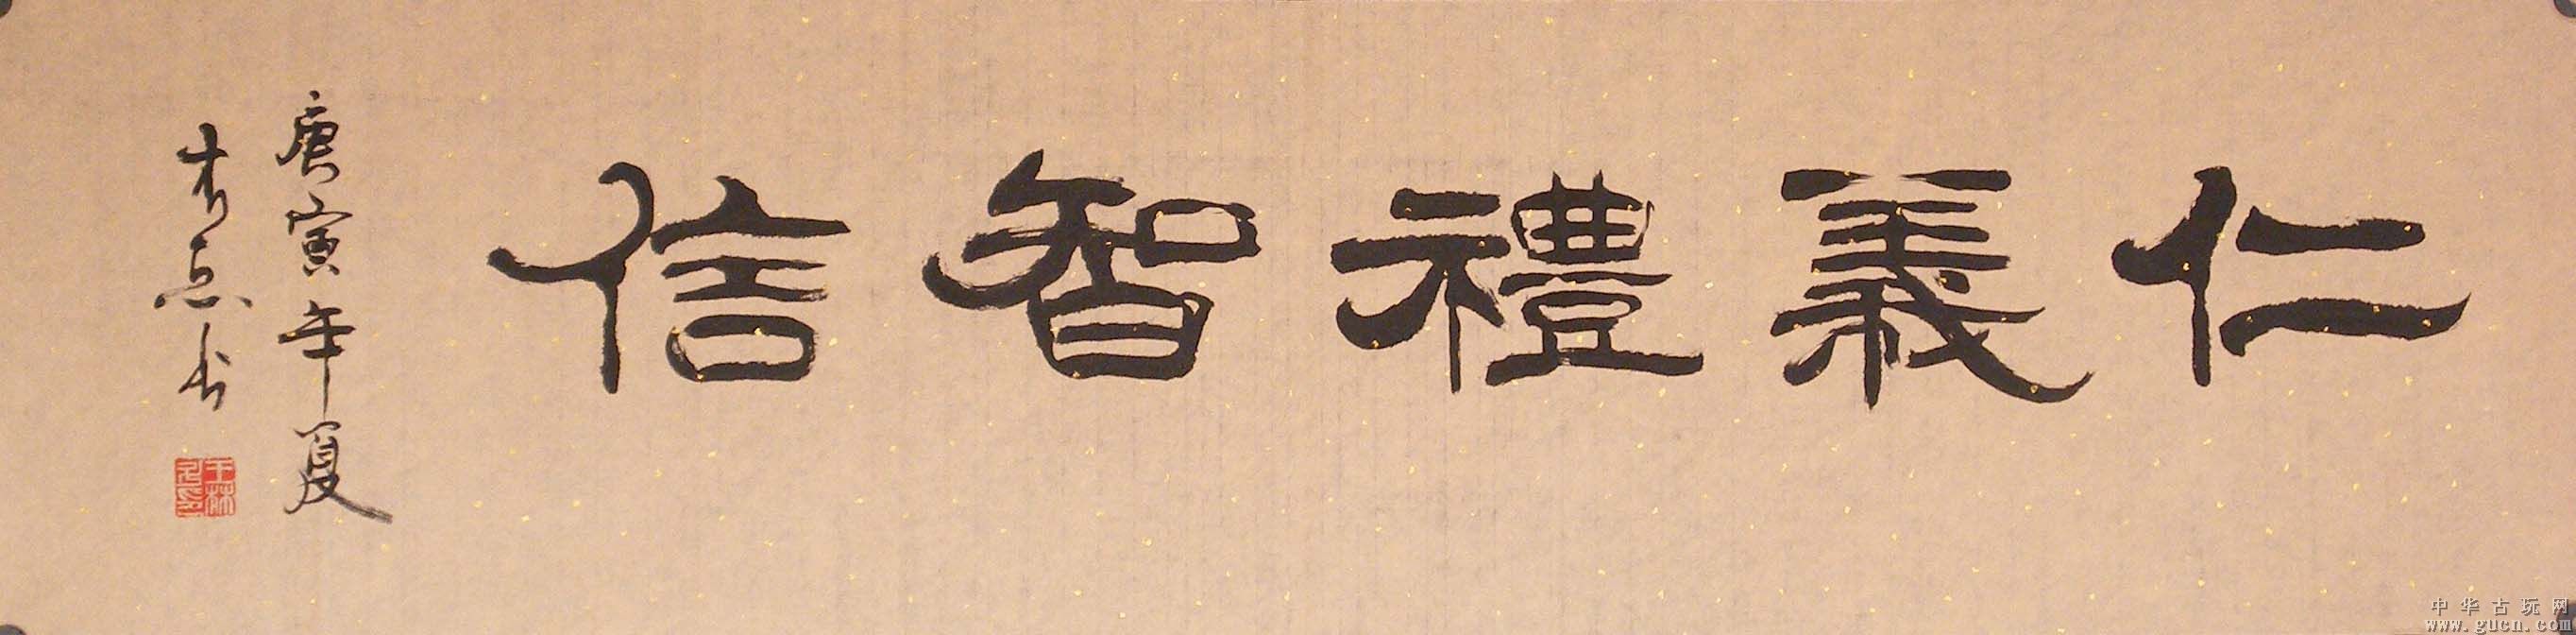 仁義禮智信
庚寅年夏
书
中华古玩网
www.gucn.com